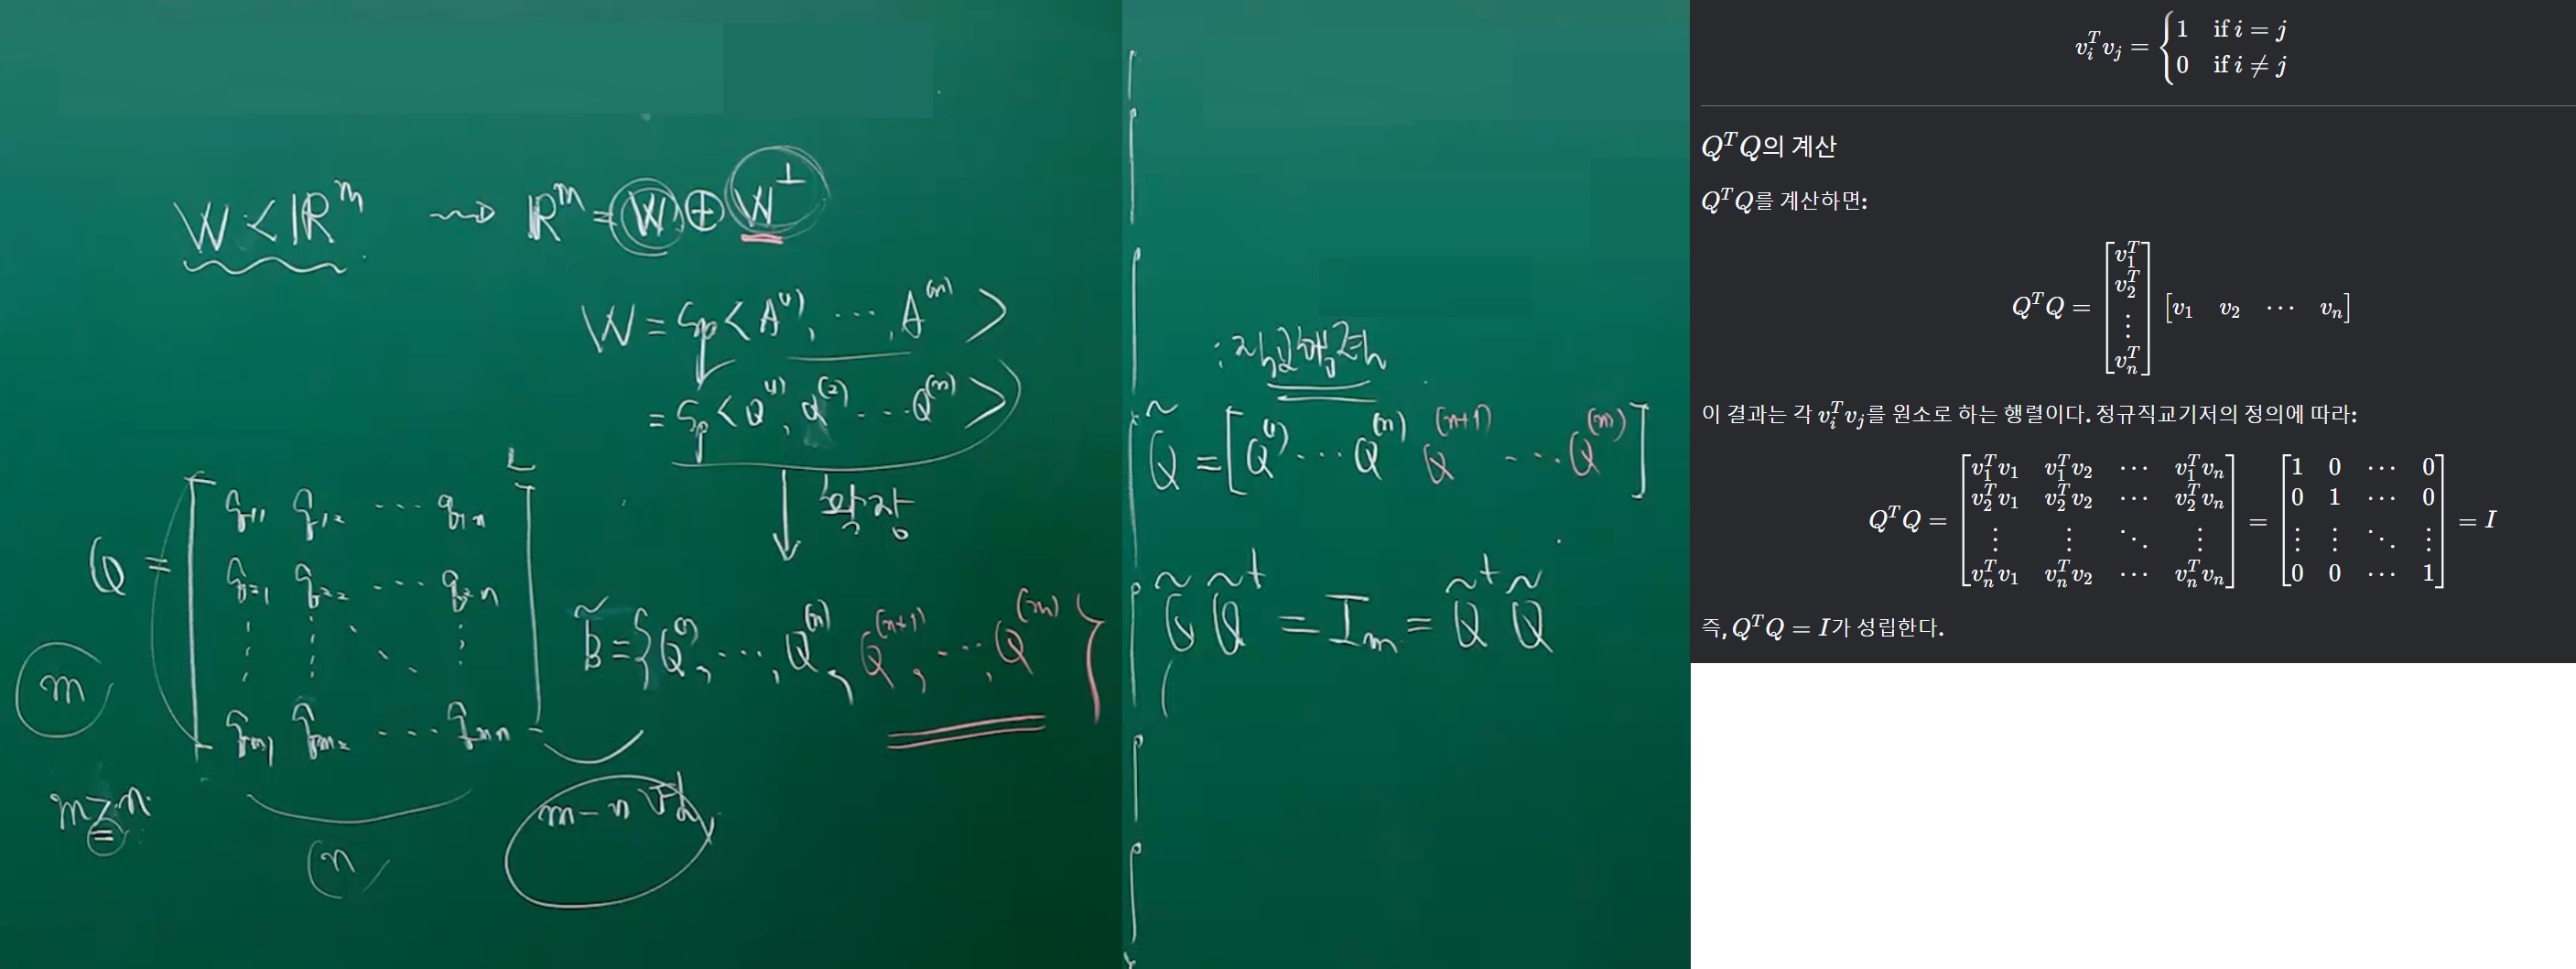 W < ℝᵐ ⇝ ℝᵐ = W ⊕ W^⊥
W = Sp < A⁽¹⁾, ⋯, A⁽ⁿ⁾ >
= Sp < Q⁽¹⁾, Q⁽²⁾ ⋯ Q⁽ⁿ⁾ >
확장
Q = [ q₁₁ q₁₂ ⋯ q₁ₙ
q₂₁ q₂₂ ⋯ q₂ₙ
⋮ ⋮ ⋱ ⋮
qₘ₁ qₘ₂ ⋯ qₘₙ ]
m
m ≥ n
n
B̃ = { Q⁽¹⁾, ⋯, Q⁽ⁿ⁾, Q⁽ⁿ⁺¹⁾, ⋯, Q⁽ᵐ⁾ }
m-n
: 직교행렬
Q̃ = [ Q⁽¹⁾ ⋯ Q⁽ⁿ⁾ Q⁽ⁿ⁺¹⁾ ⋯ Q⁽ᵐ⁾ ]
Q̃ Q̃ᵗ = Iₘ = Q̃ᵗ Q̃
vᵢᵀvⱼ = { 1 if i = j
0 if i ≠ j
QᵀQ의 계산
QᵀQ를 계산하면:
QᵀQ = [ v₁ᵀ v₂ᵀ ⋮ vₙᵀ ] [ v₁ v₂ ⋯ vₙ ]
이 결과는 각 vᵢᵀvⱼ를 원소로 하는 행렬이다. 정규직교기저의 정의에 따라:
QᵀQ = [ v₁ᵀv₁ v₁ᵀv₂ ⋯ v₁ᵀvₙ
v₂ᵀv₁ v₂ᵀv₂ ⋯ v₂ᵀvₙ
⋮ ⋮ ⋱ ⋮
vₙᵀv₁ vₙᵀv₂ ⋯ vₙᵀvₙ ] = [ 1 0 ⋯ 0
0 1 ⋯ 0
⋮ ⋮ ⋱ ⋮
0 0 ⋯ 1 ] = I
즉, QᵀQ = I가 성립한다.